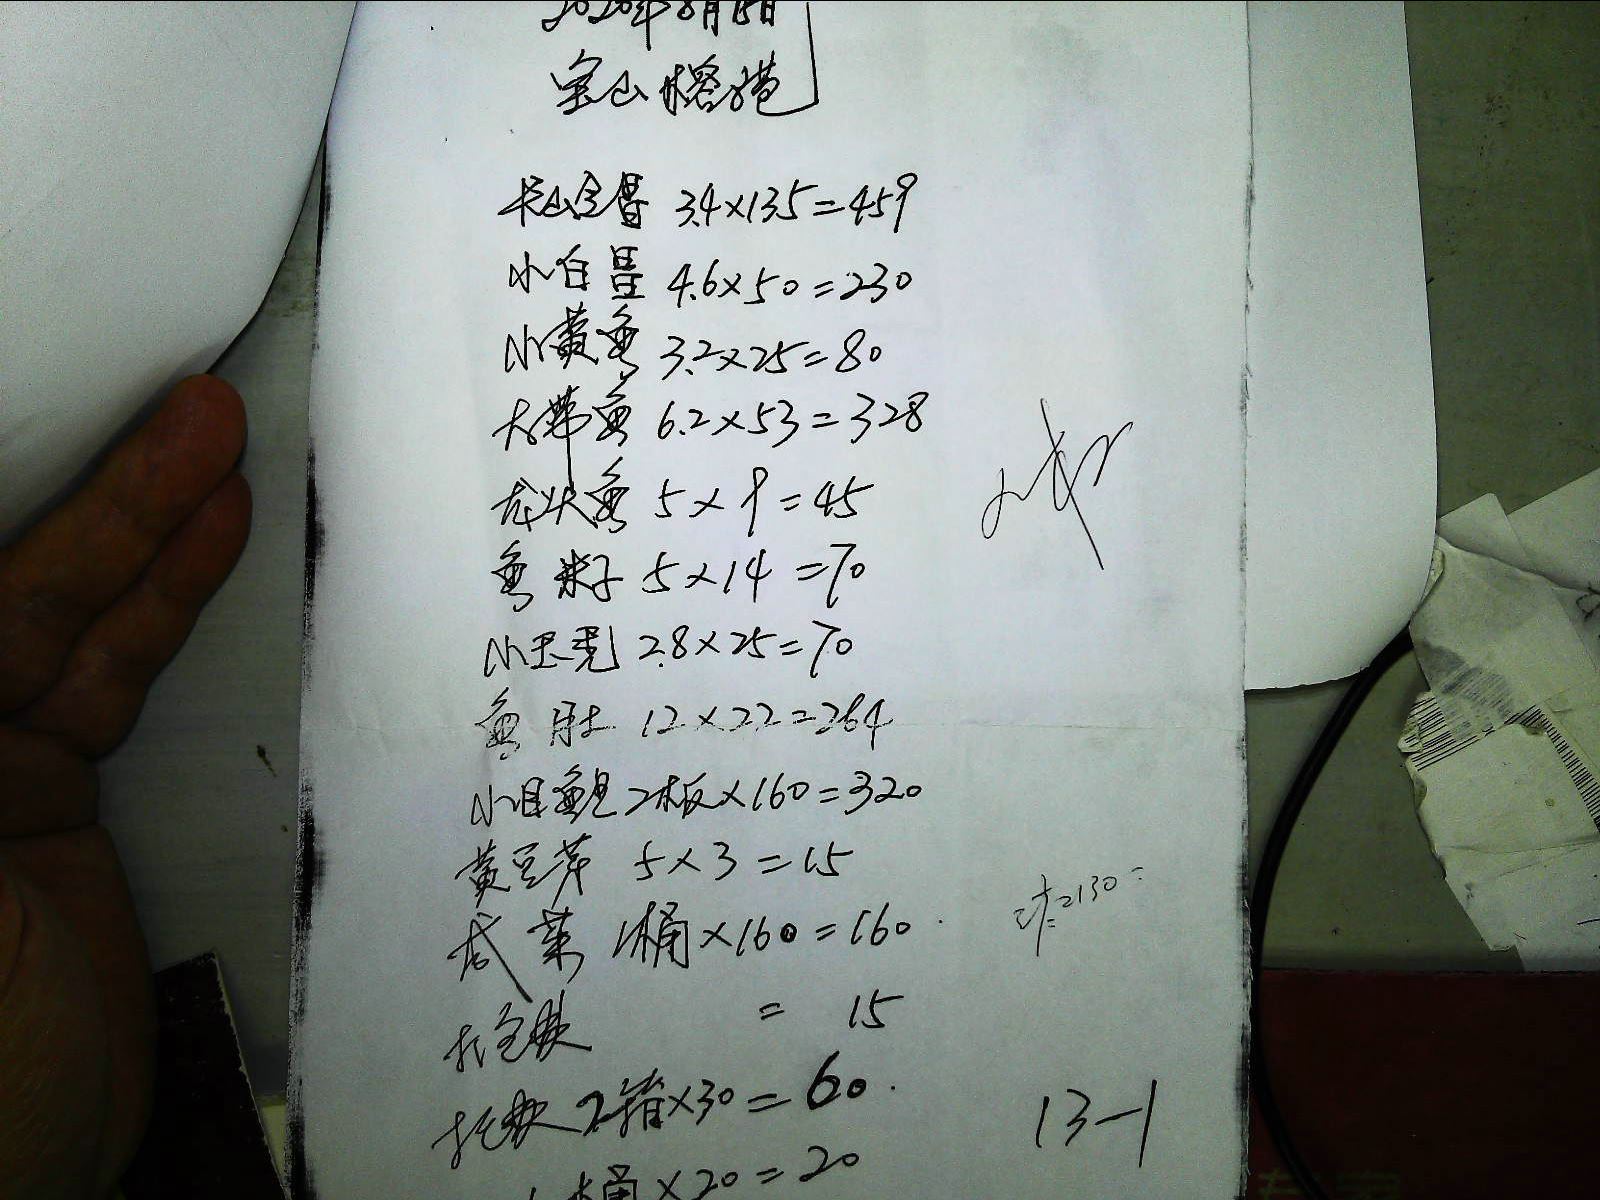 2020年8月15日
宝山榕港
3.4×135=459
小白 4.6×50=230
小黄鱼 3.2×25=80
大带鱼 6.2×53=328
龙头鱼 5×9=45
鱼籽 5×14=70
小 2.8×25=70
鱼肚 12×22=264
小目鱼 2板×160=320
黄豆芽 5×3=15
咸菜 1桶×160=160
=15
2箱×30=60
1桶×20=20
2130
13-1